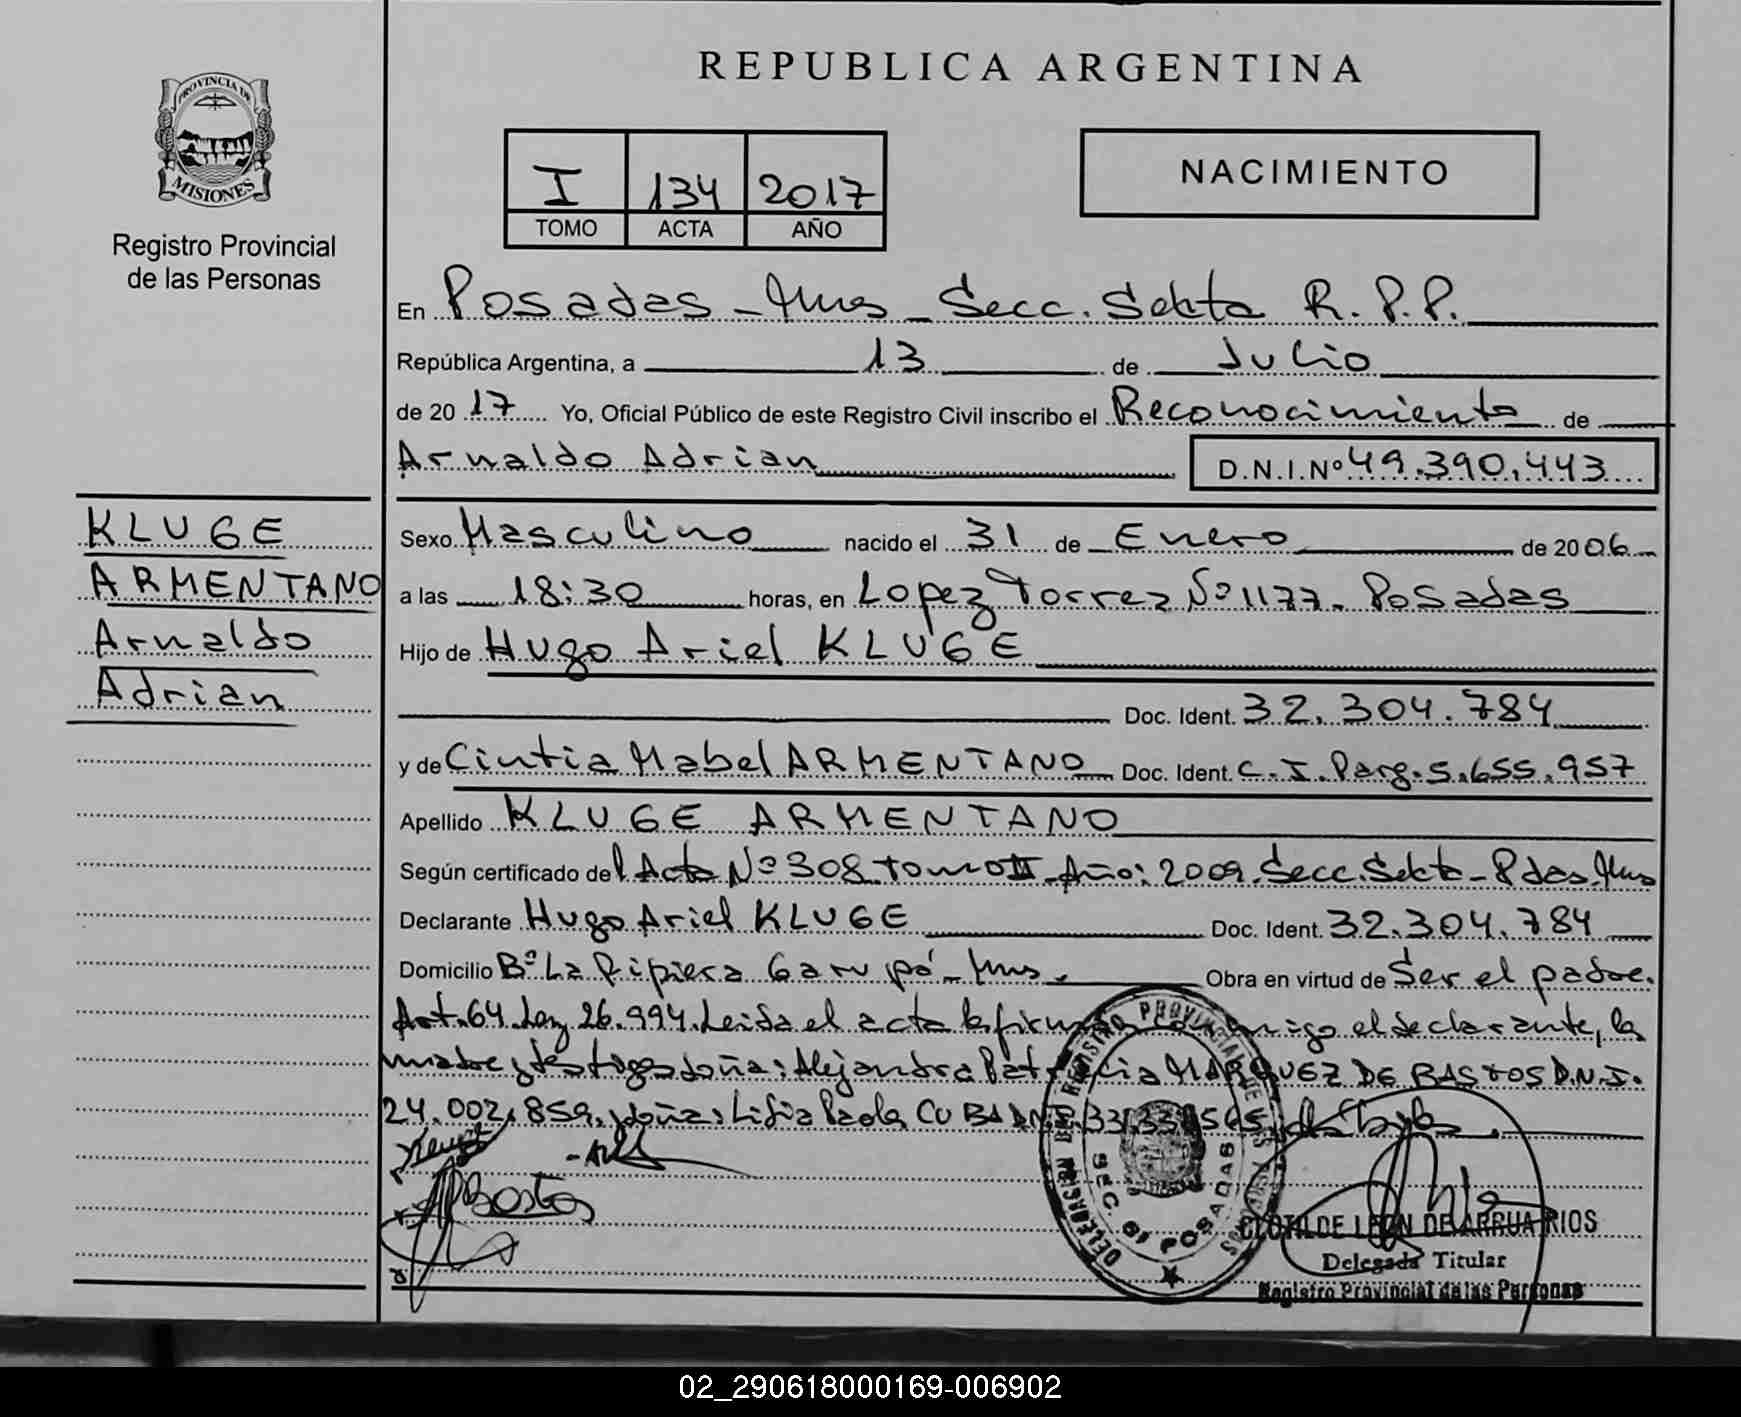 REPUBLICA ARGENTINA
PROVINCIA DE
MISIONES
Registro Provincial
de las Personas
I 134 2017
TOMO ACTA AÑO
NACIMIENTO
En Posadas - Mnes - Secc. Sexta R.P.P.
República Argentina, a 13 de Julio
de 2017 Yo, Oficial Público de este Registro Civil inscribo el Reconocimiento de
Arnaldo Adrian D.N.I. Nº 49.390.443
KLUGE
ARMENTANO
Arnaldo
Adrian
Sexo Masculino nacido el 31 de Enero de 2006
a las 18:30 horas, en Lopez Torrez Nº 1177. Posadas
Hijo de Hugo Ariel KLUGE
Doc. Ident. 32.304.784
y de Cintia Mabel ARMENTANO Doc. Ident. C.I. Parg. 5.655.957
Apellido KLUGE ARMENTANO
Según certificado del Acta Nº 308 Tomo II Año: 2009. Secc. Sexta - Pdas. Mnes
Declarante Hugo Ariel KLUGE Doc. Ident. 32.304.784
Domicilio Bº La Ripiera Garupá - Mnes. Obra en virtud de Ser el padre.
Art. 64. Ley 26.994. Leida el acta la firman conmigo el declarante, la
madre y testigos doña: Alejandra Patricia MARQUEZ DE BASTOS D.N.I.
24.002.859. y doña: Lidia Paola CUBA D.N.I.
ABastos
SEC. 6ª POSADAS
CLOTILDE LEON DE ARRUA RIOS
Delegada Titular
Registro Provincial de las Personas
02_290618000169-006902